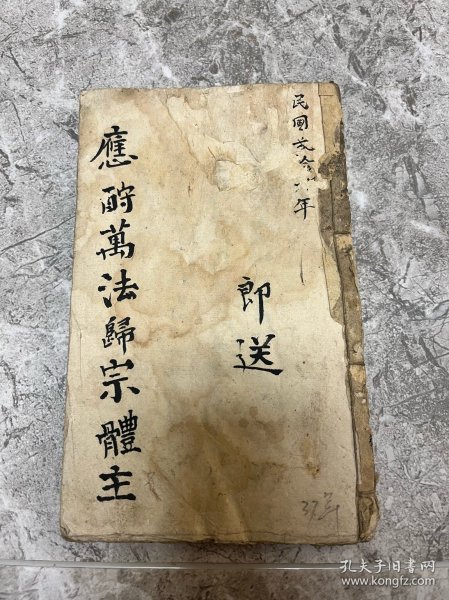 民國
年
即送
應酧萬法歸宗體主
37
孔夫子旧书网
www.kongfz.com